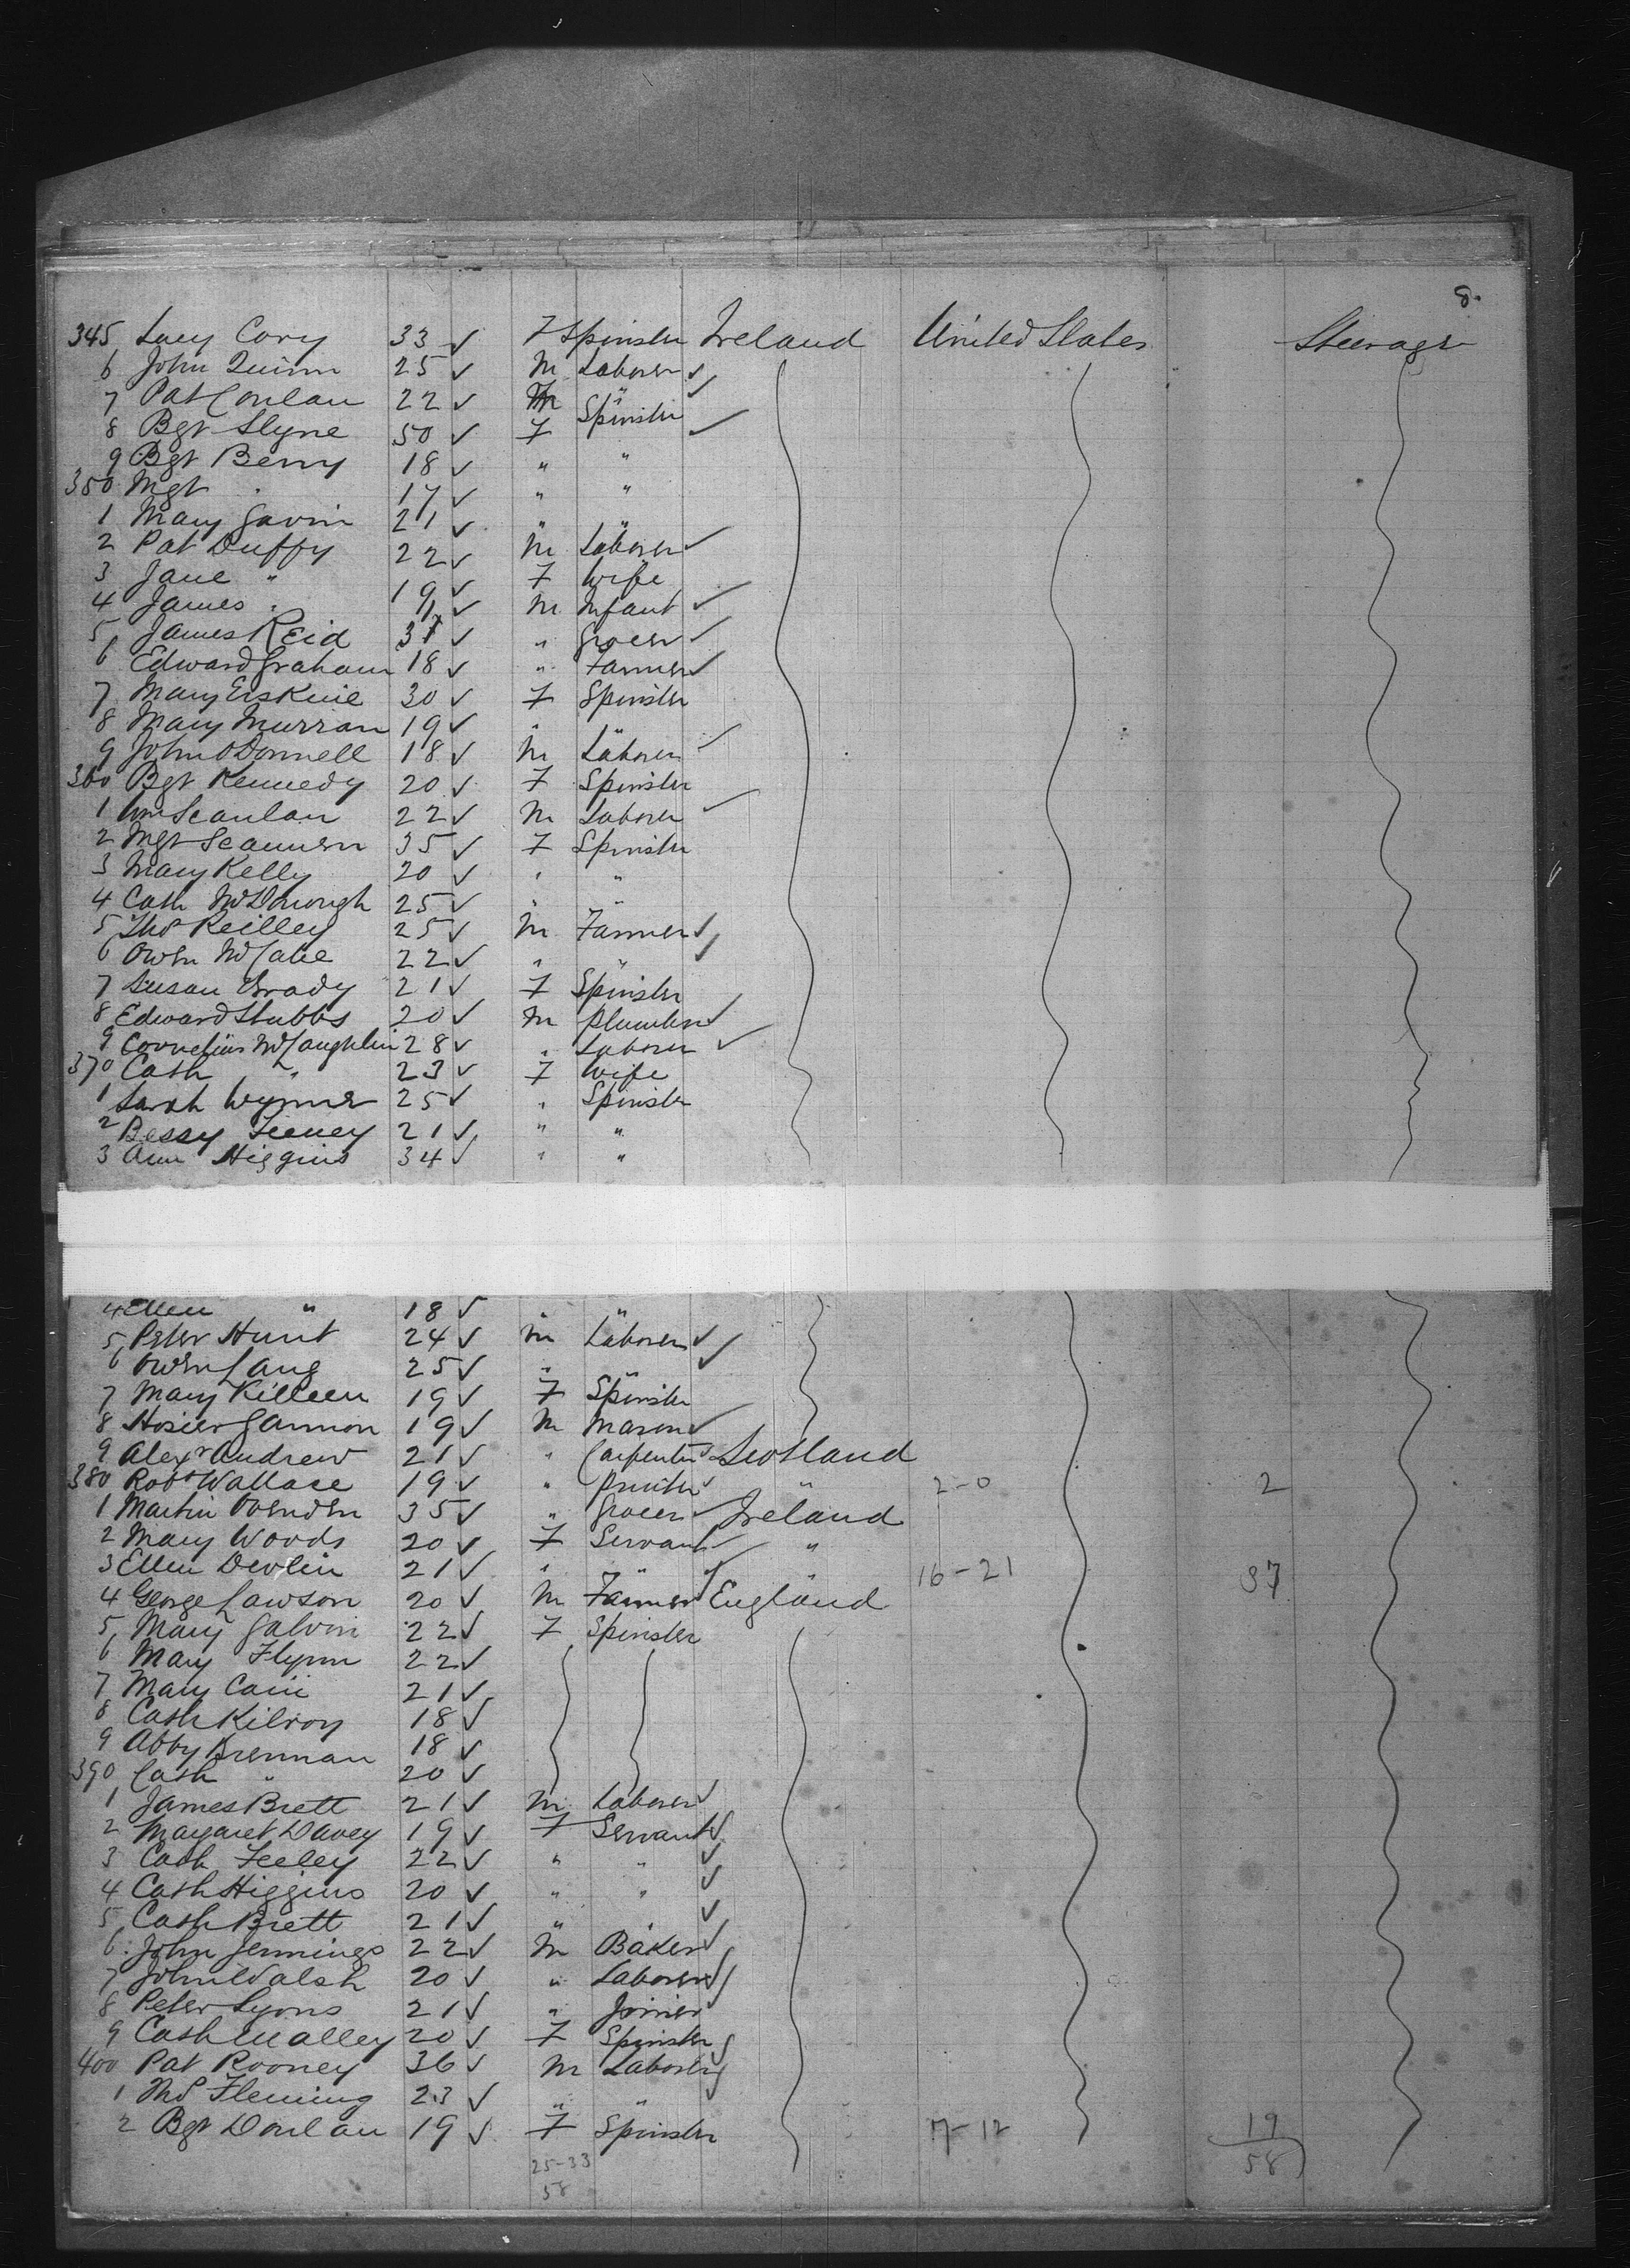 8.
345 Lucy Cory 33 ✓ F Spinster Ireland United States Steerage
6 John Quinn 25 ✓ M Laborer ✓
7 Pat Conlan 22 ✓ M " ✓
8 Bgt Slyne 50 ✓ F Spinster ✓
9 Bgt Berry 18 ✓ " "
350 Mgt " 17 ✓ " "
1 Mary Gavin 21 ✓ " "
2 Pat Duffy 22 ✓ M Laborer ✓
3 Jane " 19 ✓ F Wife
4 James " ✓ M Infant ✓
5 James Reid 37 ✓ " Grocer ✓
6 Edward Graham 18 ✓ " Farmer ✓
7 Mary Erskine 30 ✓ F Spinster
8 Mary Murran 19 ✓ " "
9 John O'Donnell 18 ✓ M Laborer ✓
360 Bgt Kennedy 20 ✓ F Spinster
1 Wm Scanlan 22 ✓ M Laborer ✓
2 Mgt Scannern 35 ✓ F Spinster
3 Mary Kelly 20 ✓ " "
4 Cath McDonough 25 ✓ " "
5 Thos Reilley 25 ✓ M Farmer ✓
6 Owen McCabe 22 ✓ " " ✓
7 Susan Brady 21 ✓ F Spinster
8 Edward Stubbs 20 ✓ M Plumber ✓
9 Cornelius McLaughlin 28 ✓ " Laborer ✓
370 Cath " 23 ✓ F Wife
1 Sarah Wynne 25 ✓ " Spinster
2 Bessy Feeney 21 ✓ " "
3 Ann Higgins 34 ✓ " "
4 Ellen " 18 ✓ " "
5 Peter Hunt 24 ✓ M Laborer ✓
6 Owen Lang 25 ✓ " " ✓
7 Mary Killeen 19 ✓ F Spinster
8 Hosier Gannon 19 ✓ M Mason ✓
9 Alexr Andrew 21 ✓ " Carpenter ✓ Scotland
380 Robt Wallace 19 ✓ " Printer ✓ " 2-0 2
1 Martin 35 ✓ " Grocer ✓ Ireland
2 Mary Woods 20 ✓ F Servant ✓ "
3 Ellen Devlin 21 ✓ " " ✓ " 16-21 37
4 George Lawson 20 ✓ M Farmer ✓ England
5 Mary Galvin 22 ✓ F Spinster
6 Mary Flynn 22 ✓
7 Mary Cain 21 ✓
8 Cath Kilroy 18 ✓
9 Abby Brennan 18 ✓
390 Cath " 20 ✓
1 James Brett 21 ✓ M Laborer ✓
2 Margaret Davey 19 ✓ F Servant ✓
3 Cath Feeley 22 ✓ " " ✓
4 Cath Higgins 20 ✓ " " ✓
5 Cath Brett 21 ✓ " " ✓
6 John Jennings 22 ✓ M Baker ✓
7 John Walsh 20 ✓ " Laborer ✓
8 Peter Lyons 21 ✓ " Joiner ✓
9 Cath Malley 20 ✓ F Spinster
400 Pat Rooney 36 ✓ M Laborer ✓
1 Ths Fleming 23 ✓ " " ✓
2 Bgt Donlan 19 ✓ F Spinster 7-12 19
25-33 58
58